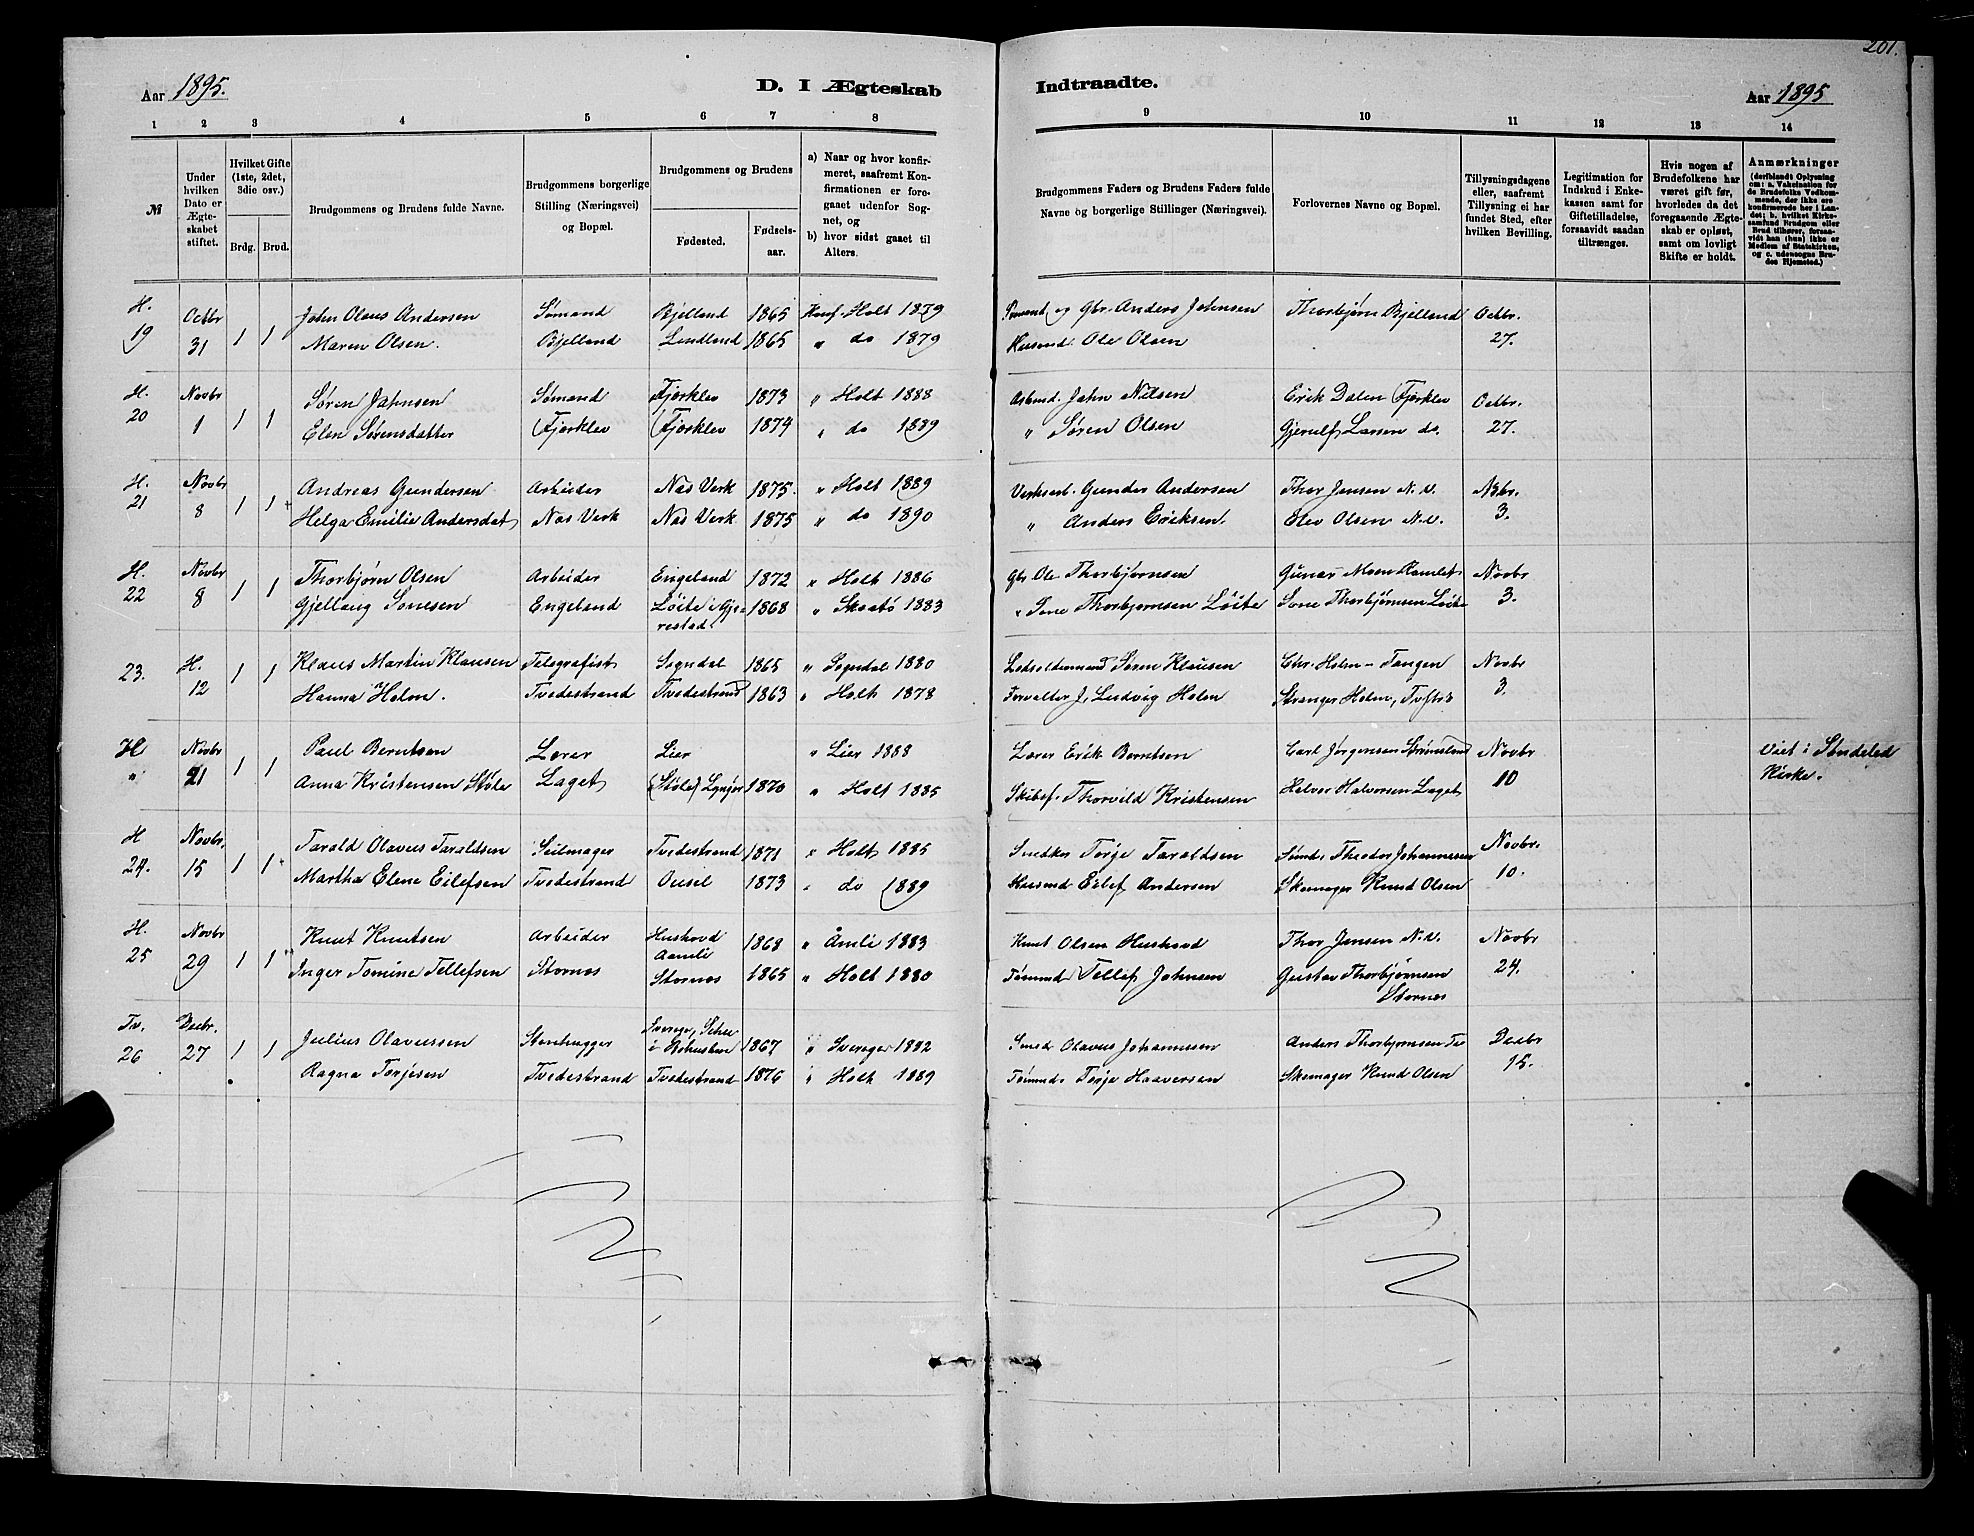 201.
Aar 1895. D. I Ægteskab Indtraadte. Aar 1895
1 2 3 4 5 6 7 8 9 10 11 12 13 14
№
Under hvilken Dato er Ægteskabet stiftet.
Hvilket Gifte (1ste, 2det, 3die osv.)
Brdg. Brud.
Brudgommens og Brudens fulde Navne.
Brudgommens borgerlige Stilling (Næringsvei) og Bopæl.
Brudgommens og Brudens
Fødested. Fødselsaar.
a) Naar og hvor konfirmeret, saafremt Konfirmationen er foregaaet udenfor Sognet, og
b) hvor sidst gaaet til Alters.
Brudgommens Faders og Brudens Faders fulde Navne og borgerlige Stillinger (Næringsvei).
Forlovernes Navne og Bopæl.
Tillysningsdagene eller, saafremt Tillysning ei har fundet Sted, efter hvilken Bevilling.
Legitimation for Indskud i Enkekassen samt for Giftetilladelse, forsaavidt saadan tiltrænges.
Hvis nogen af Brudefolkene har været gift før, hvorledes da det foregaaende Ægteskab er opløst, samt om lovligt Skifte er holdt.
Anmærkninger (deriblandt Oplysning om: a. Vaksination for de Brudefolks Vedkommende, der ikke ere konfirmerede her i Landet; b. hvilket Kirkesamfund Brudgom eller Brud tilhører, forsaavidt han (hun) ikke er Medlem af Statskirken, og c. udensogns Brudes Hjemsted.)
H. Octbr John Olaus Andersen Sømand Bjelland 1865 Konf. Holt 1879 og Gbr. Anders Johnsen Thorbjørn Bjelland Octbr.
19 31 1 1 Maren Olsen. Bjelland Lindland 1865 " do 1879 Husmd. Ole Olsen 27.
H. Novbr Søren Johnsen Sømand Fjerklev 1873 " Holt 1888 Arbmd. John Nilsen Erik Dalen Fjerklev Octbr.
20 1 1 1 Elen Sørensdatter Fjerklev Fjerklev 1874 " do 1889 " Søren Olsen Gjerulf Larsen do. 27.
H. Novbr Andreas Gundersen Arbeider Nas Verk 1875. " Holt 1889 Verksarb. Gunder Andersen Thor Jensen N. V. Nvbr.
21 8 1 1 Helga Emilie Andersdat Nas Verk Nas Verk 1875 " do 1890 " Anders Eriksen. Elev Olsen N. V. 3.
H. Novbr Thorbjørn Olsen Arbeider Engeland 1872 " Holt 1886 Gbr. Ole Thorbjørnsen Gunar Moen Ramlet Novbr
22 8 1 1 Gjellaug Sonesen Engeland Löite i Gjerestad 1868 " Skaatö 1883 " Sone Thorbjørnsen Löite Sone Thorbjørnsen Löite 3.
23. H. 12 1 1 Klaus Martin Klausen Telegrafist Sogndal 1865 " Sogndal 1880 Søren Klausen Chr. Holm - Tangen Novbr
Hanna Holm. Tvedestrand Tvedestrand 1863 " Holt 1878 Forvalter J. Ludvig Holm Stranger Holm, 3.
H Novbr Paul Berntsen Lærer Lier " Lier 1888 Lærer Erik Berntsen Carl Jørgensen Novbr Viet i Søndeled
" 21 1 1 Anna Kristensen Støle Laget (Støle) Lyngør 1870 " Holt 1885 Skibsf. Thorvild Kristensen Halvor Halvorsen Laget 10 Kirke.
H Novbr. Tarald Olavus Taraldsen Seilmager Tvedestrand 1871 " Holt 1885 Snedker Torge Taraldsen Sømd. Theodor Johannessen Novbr.
24. 15 1 1 Martha Elene Eilefsen Tvedestrand Ousel 1873 " do 1889 Husmd Eilef Andersen Skomager Knud Olsen 10.
H. Novbr Knut Knutsen Arbeider Hushovd Aamli 1868 " Åmli 1883 Knut Olsen Hushovd Thor Jensen N. V. Novbr
25 29 1 1 Inger Tomine Tellefsen Stornes Stornes 1865 " Holt 1880 Tømmd Tellef Johnsen Gustav Thorbjørnsen 24.
Stornes
Tv. Decbr. Julius Olavussen Stenhugger Sverige, i Bohuslen 1867 " Sverige 1882 Smed Olavus Johannesen Anders Thorbjørnsen Tv Decbr
26 27 1 1 Ragna Torjesen Tvedestrand Tvedestrand 1876 " Holt 1889 Tømmd. Torje Haaversen Skomager Knud Olsen 15.